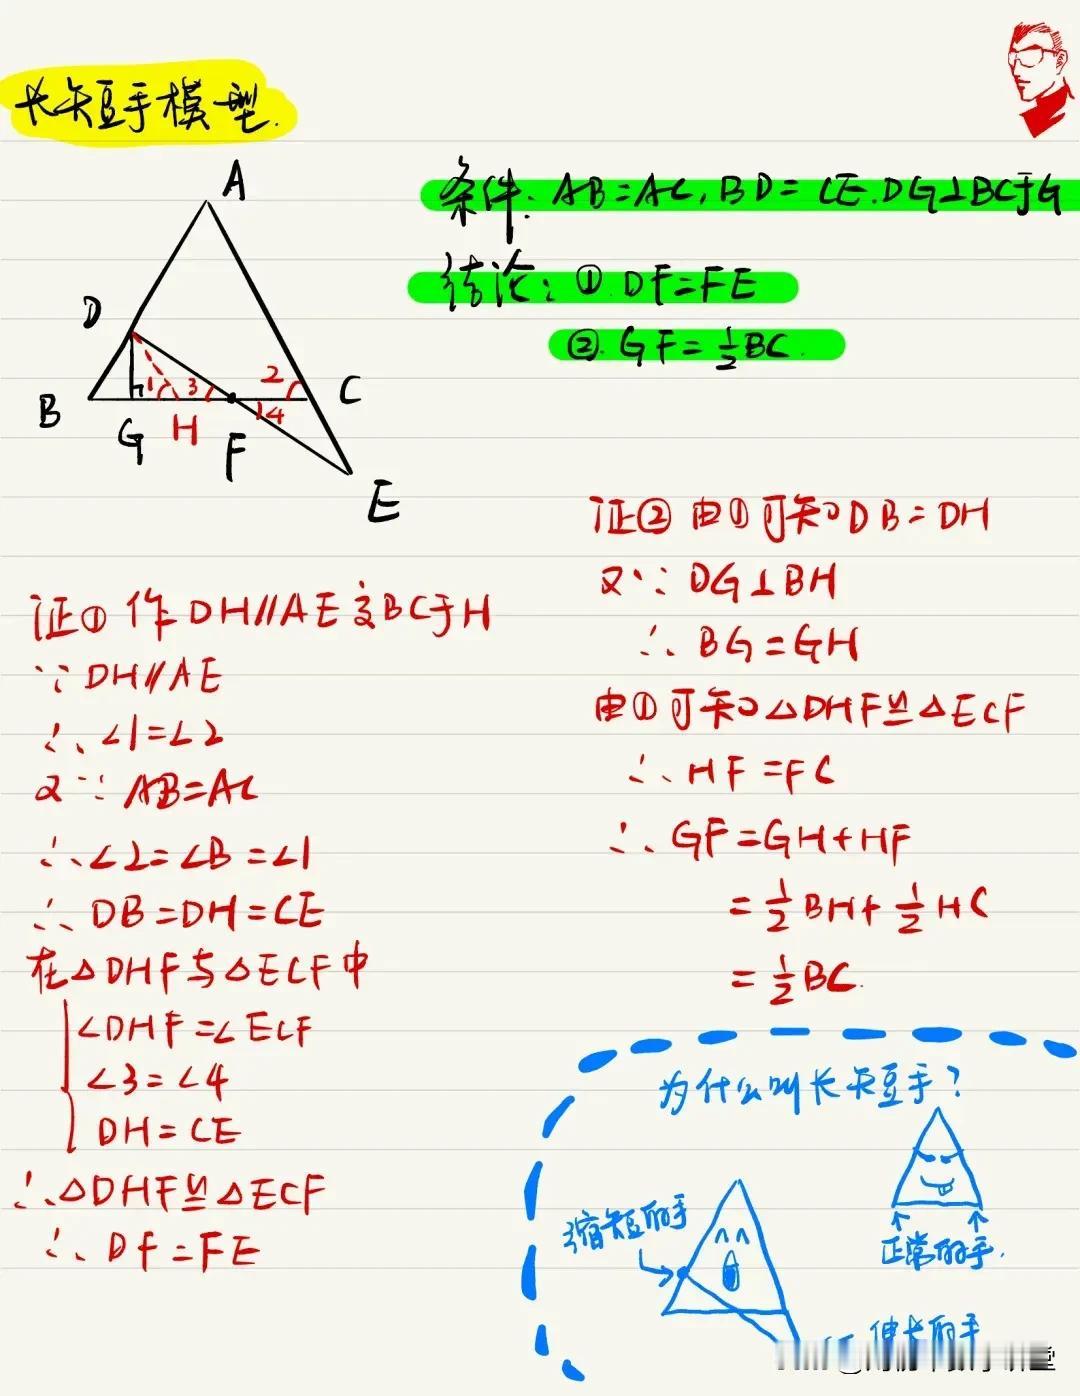 长短手模型.
A
D
B
C
G
H
F
E
1
3
2
4
条件: AB=AC, BD=CE. DG⊥BC于G
结论: ① DF=FE
② GF=½BC.
证① 作 DH∥AE 交BC于H
∵ DH∥AE
∴ ∠1=∠2
又∵ AB=AC
∴ ∠2=∠B=∠1
∴ DB=DH=CE
在△DHF与△ECF中
∠DHF=∠ECF
∠3=∠4
DH=CE
∴ △DHF≌△ECF
∴ DF=FE
证② 由①可知 DB=DH
又∵ DG⊥BH
∴ BG=GH
由①可知 △DHF≌△ECF
∴ HF=FC
∴ GF=GH+HF
=½BH+½HC
=½BC.
为什么叫长短手?
正常的手.
缩短的手
伸长的手